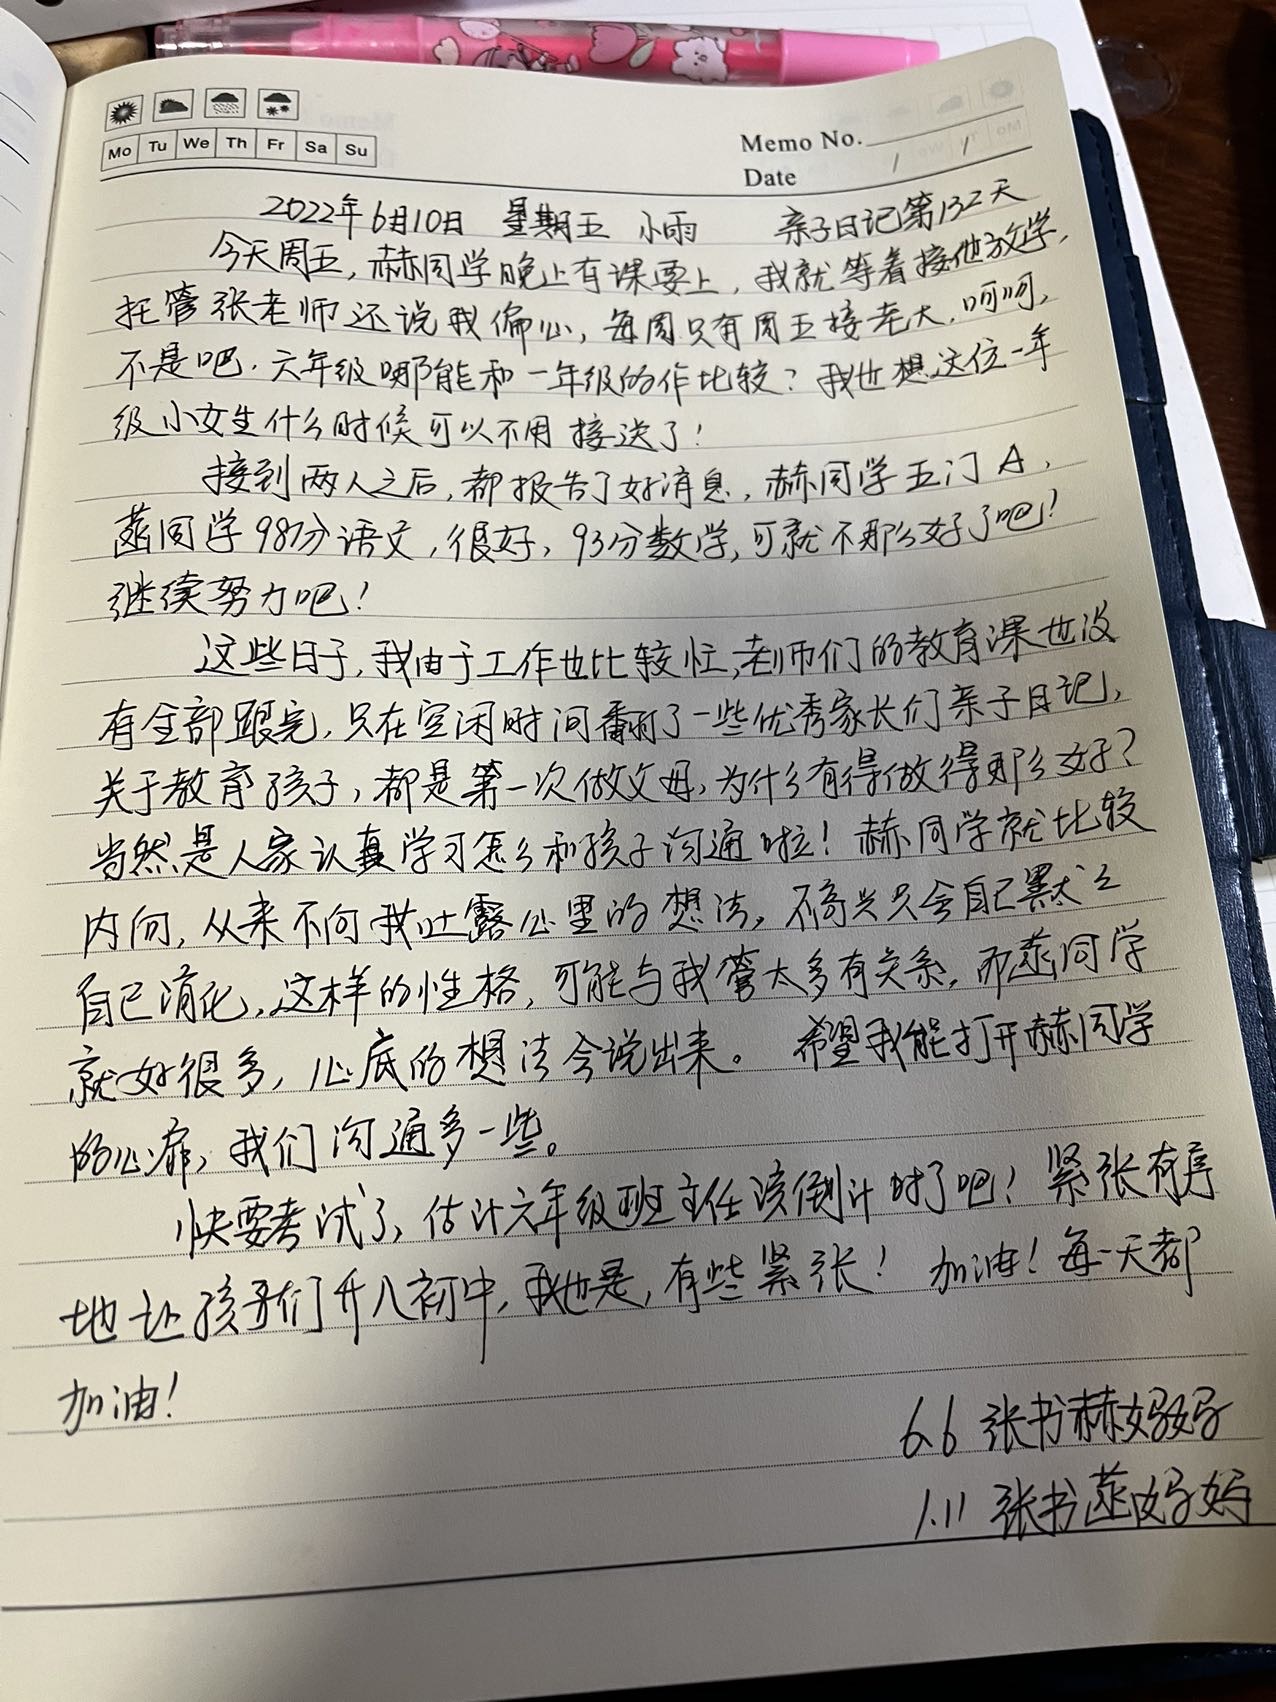 Mo Tu We Th Fr Sa Su
Memo No.
Date / /
2022年6月10日 星期五 小雨 亲子日记第132天
今天周五,赫同学晚上有课要上,我就等着接他放学,
托管张老师还说我偏心,每周只有周五接老大,呵呵,
不是吧.六年级哪能和一年级的作比较?我也想这位一年
级小女生什么时候可以不用接送了!
接到两人之后,都报告了好消息,赫同学五门A,
菡同学98分语文,很好,93分数学,可就不那么好了吧!
继续努力吧!
这些日子,我由于工作也比较忙,老师们的教育课也没
有全部跟完,只在空闲时间翻了一些优秀家长们亲子日记,
关于教育孩子,都是第一次做父母,为什么有得做得那么好?
当然是人家认真学习怎么和孩子沟通啦!赫同学就比较
内向,从来不向我吐露心里的想法,不高兴只会自己默么
自己消化,这样的性格,可能与我管太多有关系,而菡同学
就好很多,心底的想法会说出来。希望我能打开赫同学
的心扉,我们沟通多一些。
快要考试了,估计六年级班主任该倒计时了吧!紧张有序
地让孩子们升入初中,我也是,有些紧张!加油!每一天都
加油!
6.6 张书赫妈妈
1.11 张书菡妈妈